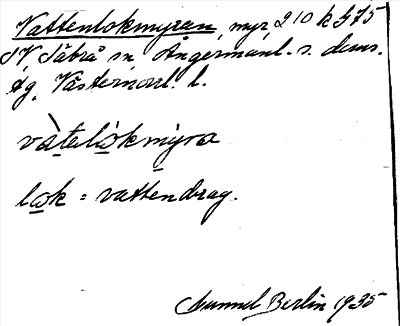 Vattenlokmyran, myr, 210 k 575
SV, Säbrå sn. Ångermanl. s. doms.
Väster norrl. l.
vàtelòkmỳra
lok = vattendrag.
Berlin 1935